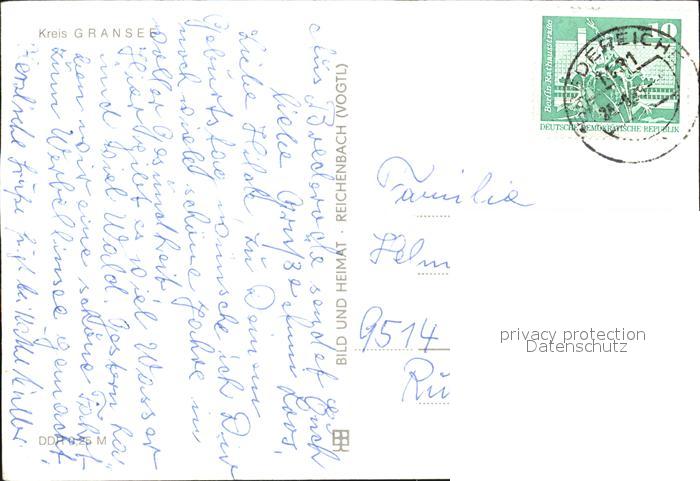 Kreis GRANSEE
Aus Brederode sendet Euch
liebe Grüße Eure
Liebe Hilde, zu Deinem
Geburtstag wünsche ich Dir
noch viele schöne Jahre in
voller Gesundheit.
Hier gibt es viel Wasser
und viel Wald. Gestern ha-
ben wir eine schöne Fahrt
zum Werbellinsee gemacht.
Herzliche Grüße
DDR 0,25 M
BILD UND HEIMAT · REICHENBACH (VOGTL)
10
Berlin, Rathausstraße
DEUTSCHE DEMOKRATISCHE REPUBLIK
Familie
Helm
9514
Rü
privacy protection
Datenschutz